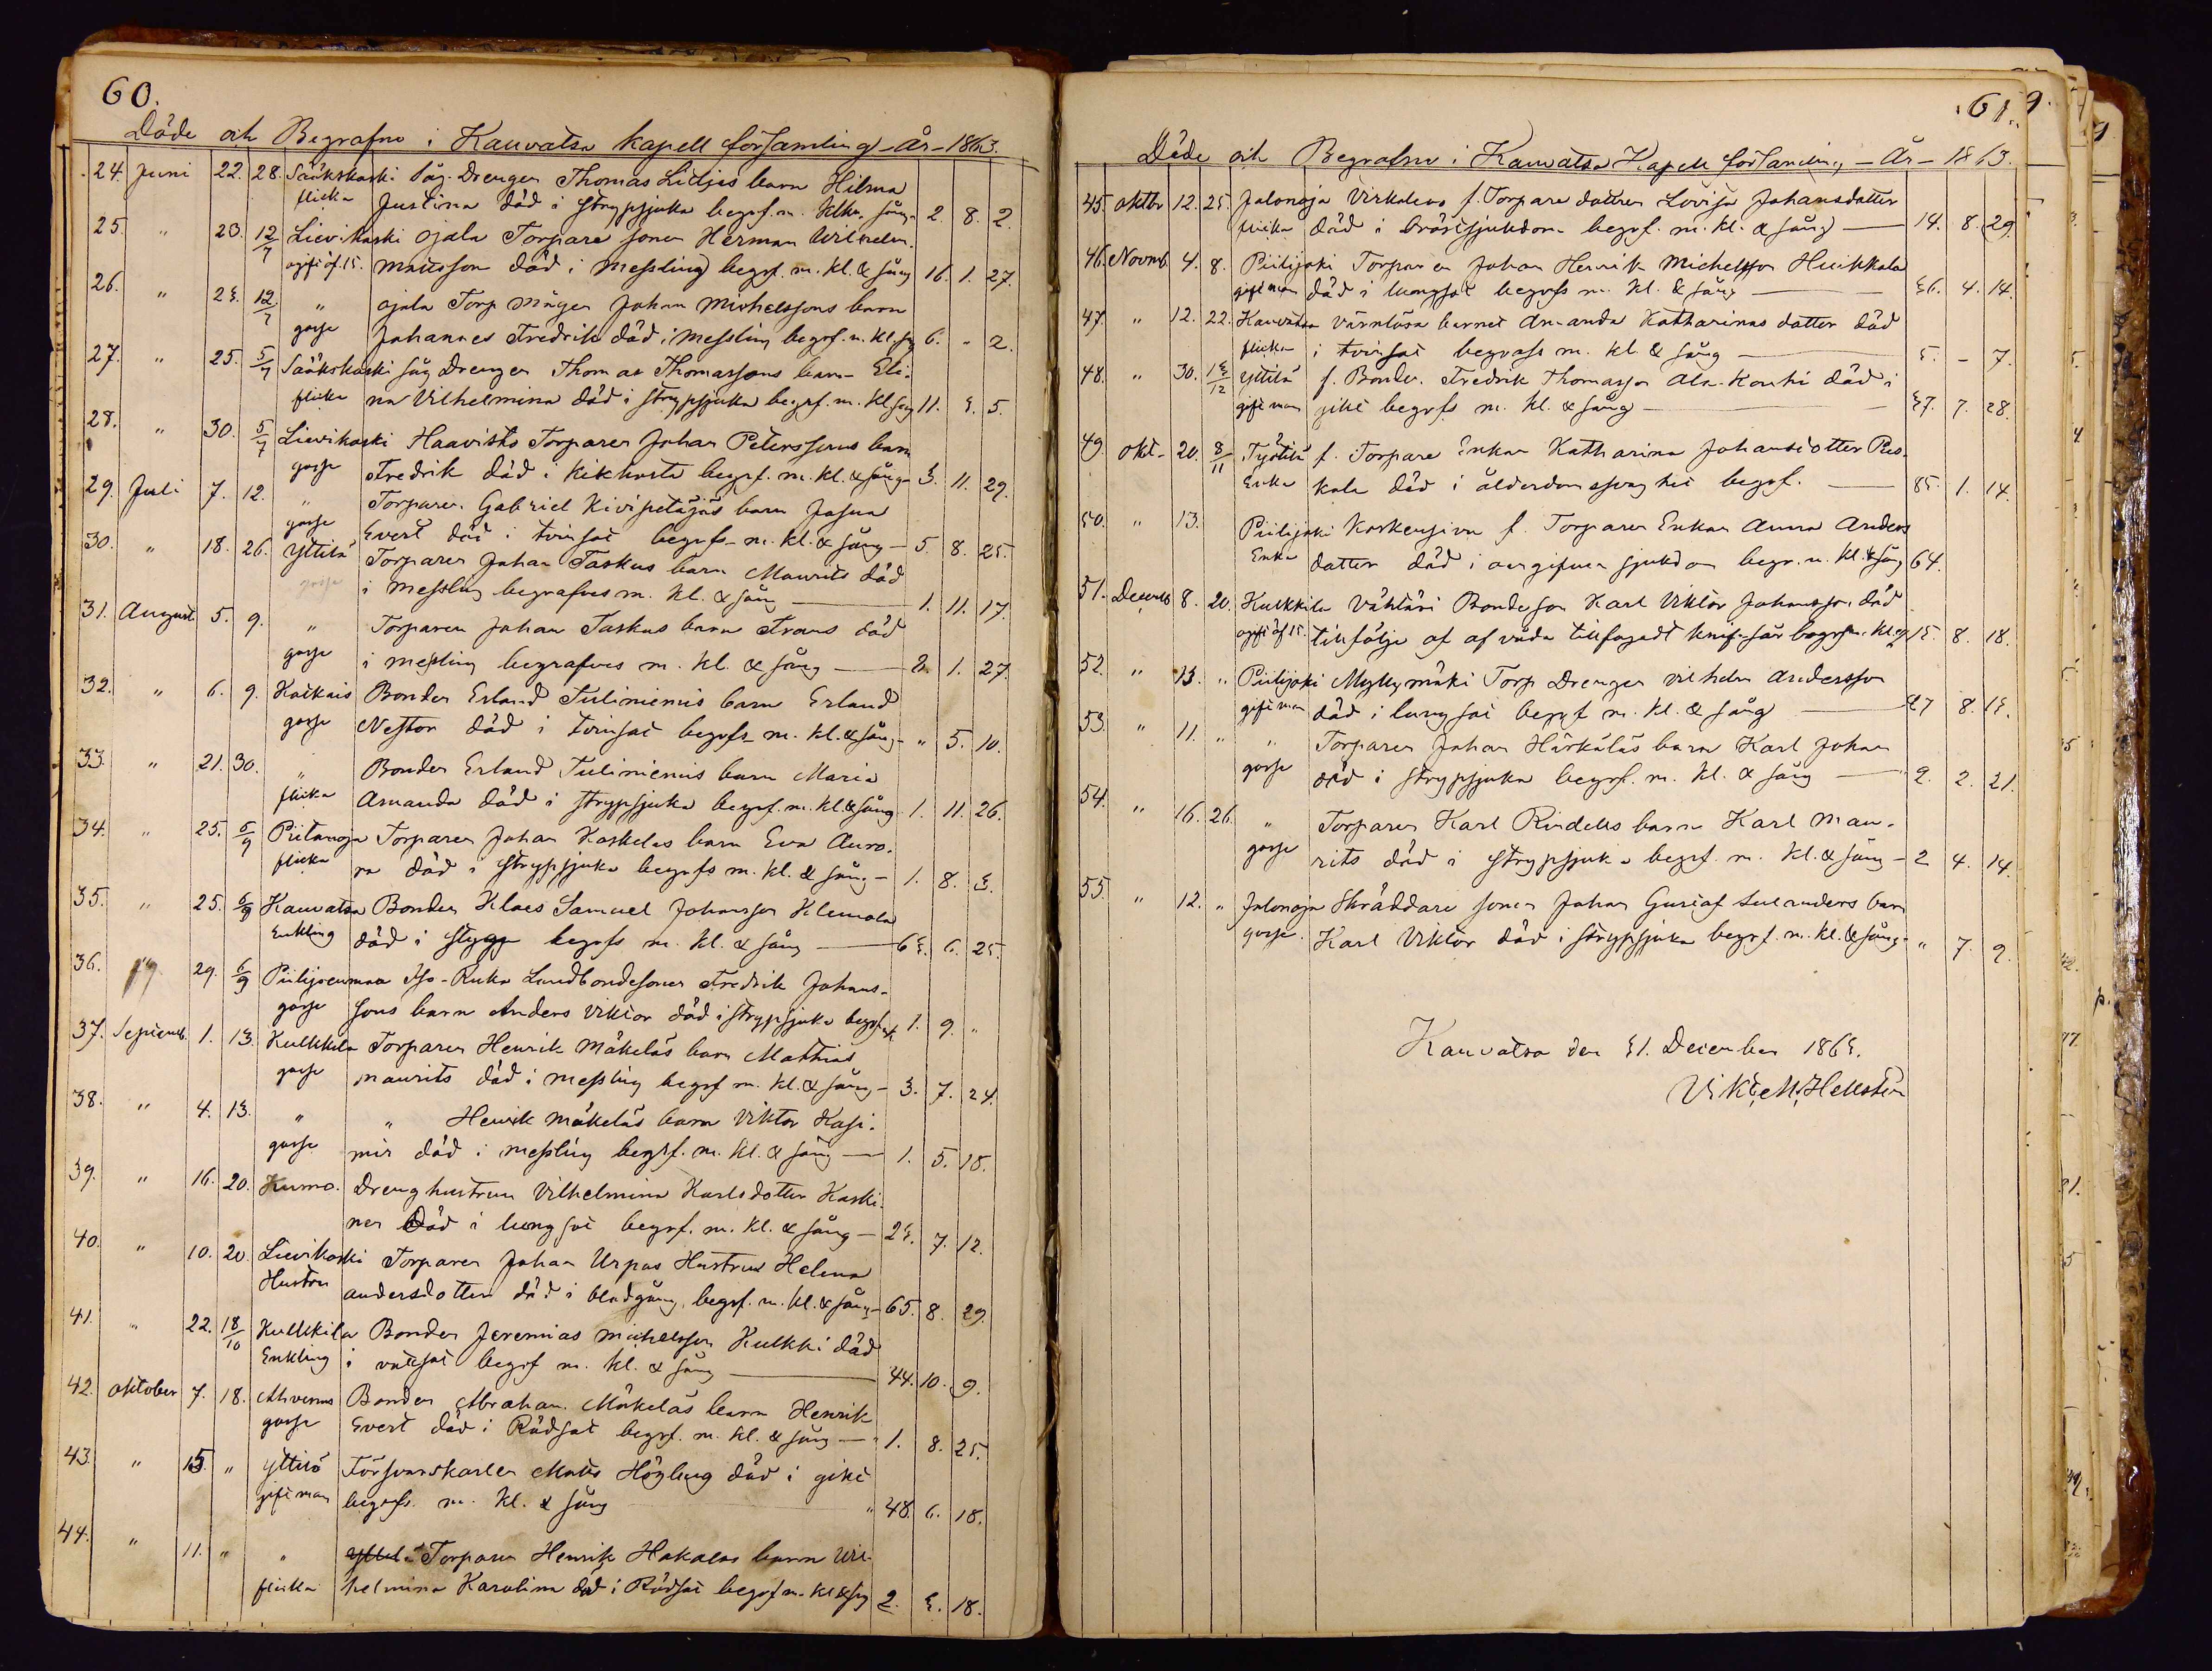 60.
Döde och Begrafne i Kauvatsa kapell församling - År - 1863.
24. Juni 22. 28. Sääkskoski Såg. Drengen Thomas Lidjes barn Hilma
flicka Justina död i strypsjuka begrf. m. Klk. sång. 2. 8. 2.
25. " 23. 12/7 Lievikoski Ojala Torpare sonen Herman Wilhelm
ogift öf. 15. Mattsson död i Messling begrf. m. kl. & sång 16. 1. 27.
26. " 23. 12/7 " Ojala Torp mågen Johan Michelssons barn
gosse Johannes Fredrik död i Messling begrf. m. kl. sg 6. " 2.
27. " 25. 5/7 Sääkskoski såg Drengen Thomas Thomassons barn Eli-
flicka na Vilhelmina död i strypsjuka begrf. m. kl. sång 11. 3. 5.
28. " 30. 5/7 Lievikoski Haavisto Torparen Johan Peterssons barn
gosse Fredrik död i Kikhosta begrf. m. kl. & sång 3. 11. 29.
29. Juli 7. 12. " Torparen Gabriel Kivipeltojas barn Josua
gosse Evert död i tvinsot begrfs. m. kl. & sång - 5. 8. 25.
30. " 18. 26. Yttilä Torparen Johan Taskus barn Maurits död
gosse i messling begrafves m. kl. & sång 1. 11. 17.
31. August 5. 9. " Torparen Johan Taskus barn Frans död
gosse i messling begrafves m. kl. & sång 3. 1. 27.
32. " 6. 9. Koskois Bonden Erland Tuliniemis barn Erland
gosse Nestor död i tvinsot begrfs. m. kl. & sång - " 5. 10.
33. " 21. 30. " Bonden Erland Tuliniemis barn Maria
flicka Amanda död i strypsjuka begrf. m. kl. & sång 1. 11. 26.
34. " 25. 6/9 Piitanoja Torparen Johan Koskelas barn Eva Auro-
flicka ra död i strypsjuka begrfs m. kl. & sång - 1. 8. 3.
35. " 25. 6/9 Kauvatsa Bonden Klaes Samuel Johansson Klemola
Enkling död i stygg begrfs m. kl. & sång 63. 6. 25.
36. " 29. 6/9 Piilijoenmaa Iso-Ruka Landbondesonen Fredrik Johans-
gosse sons barn Anders Viktor död i strypsjuka begrf. 1. 9. "
37. Septemb. 1. 13. Kulkkila Torparen Henrik Mäkeläs barn Mathias
gosse Maurits död i messling begrf m. kl. & sång - 3. 7. 24.
38. " 4. 13. " " Henrik Mäkeläs barn Viktor Kasi-
gosse mir död i messling begrf. m. kl. & sång 1. 5. 18.
39. " 16. 20. Kumo. Drenghustrun Vilhelmina Karlsdotter Koski-
nen Död i lungsot begrf. m. kl. & sång - 23. 7. 12.
40. " 10. 20. Lievikoski Torparen Johan Urpas Hustru Helena
Hustru Andersdotter död i blodgång, begrf. m. kl. & sång - 65. 8. 29.
41. " 22. 18/10 Kulkkila Bonden Jeremias Michelsson Kulkki död
Enkling i vattsot begrf m. kl. & sång 44. 10. 9.
42. Oktober 7. 18. Ahvenus Bonden Abraham Mäkeläs barn Henrik
gosse Evert död i Rödsot begrf. m. kl. & sång - 1. 8. 25.
43. " 15. " Yttilä Försvarskarlen Matts Högberg död i gikt
gift man begrfs. m. kl. & sång " 48. 6. 18.
44. " 11. " " Torparen Henrik Hakalas barn Vil-
flicka helmina Karolina död i Rödsot begrf m. kl & sg 2. 3. 18.
61.
Döde och Begrafne i Kauvatsa Kapell församling - År - 1863.
45. Oktbr 12. 25. Jalonoja Virkalens f. Torpare dottren Lovisa Johansdotter
flicka död i bröstsjukdom begrf. m. kl. & sång 14. 8. 29.
46. Novmb. 4. 8. Piilijoki Torparen Johan Henrik Michelsson Huikkala
gift man död i lungsot begrfs m. kl. & sång 36. 4. 14.
47. " 12. 22. Kauvatsa värnlösa barnet Amanda Katharinas dotter död
flicka i tvinsot begrafs m. kl. & sång 5. - 7.
48. " 30. 13/12 Yttilä f. Bonden Fredrik Thomasson Ala-Kouhi död i
gift man gikt begrfs m. kl. & sång 37. 7. 28.
49. Okt- 20. 8/11 Työtilä f. Torpare Enkan Katharina Johansdotter Pus-
Enka kala död i ålderdomssvaghet begrf. 85. 1. 14.
50. " 13. Piilijoki Koskensivu f. Torparen Enkan Anna Anders
Enka dotter död i oangifven sjukdom begr. m. kl. & sång 64.
51. Decemb 8. 20. Kulkkila Vähtäri Bondeson Karl Viktor Johansson död
ogift öf 15. till följe af af våda tillfogadt knif-sår begrfs m. kl. 15. 8. 18.
52. " 13. " Piilijoki Myllymäki Torp Drengen Vilhelm Andersson
gift man död i lungsot begrf m. kl. & sång 27 8. 13.
53. " 11. " " Torparen Johan Härkäläs barn Karl Johan
gosse död i strypsjuka begrf. m. kl. & sång 2. 2. 21.
54. " 16. 26. " Torparen Karl Rindells barn Karl Mau-
gosse rits död i strypsjuka begrf. m. kl. & sång - 2 4. 14.
55. " 12. " Jalonoja Skräddare sonen Johan Gustaf Suleanders barn
gosse. Karl Viktor död i strypsjuka begrf. m. kl. & sång - " 7. 2.
Kauvatsa den 31. December 1863.
Vikt. M. Hellstén